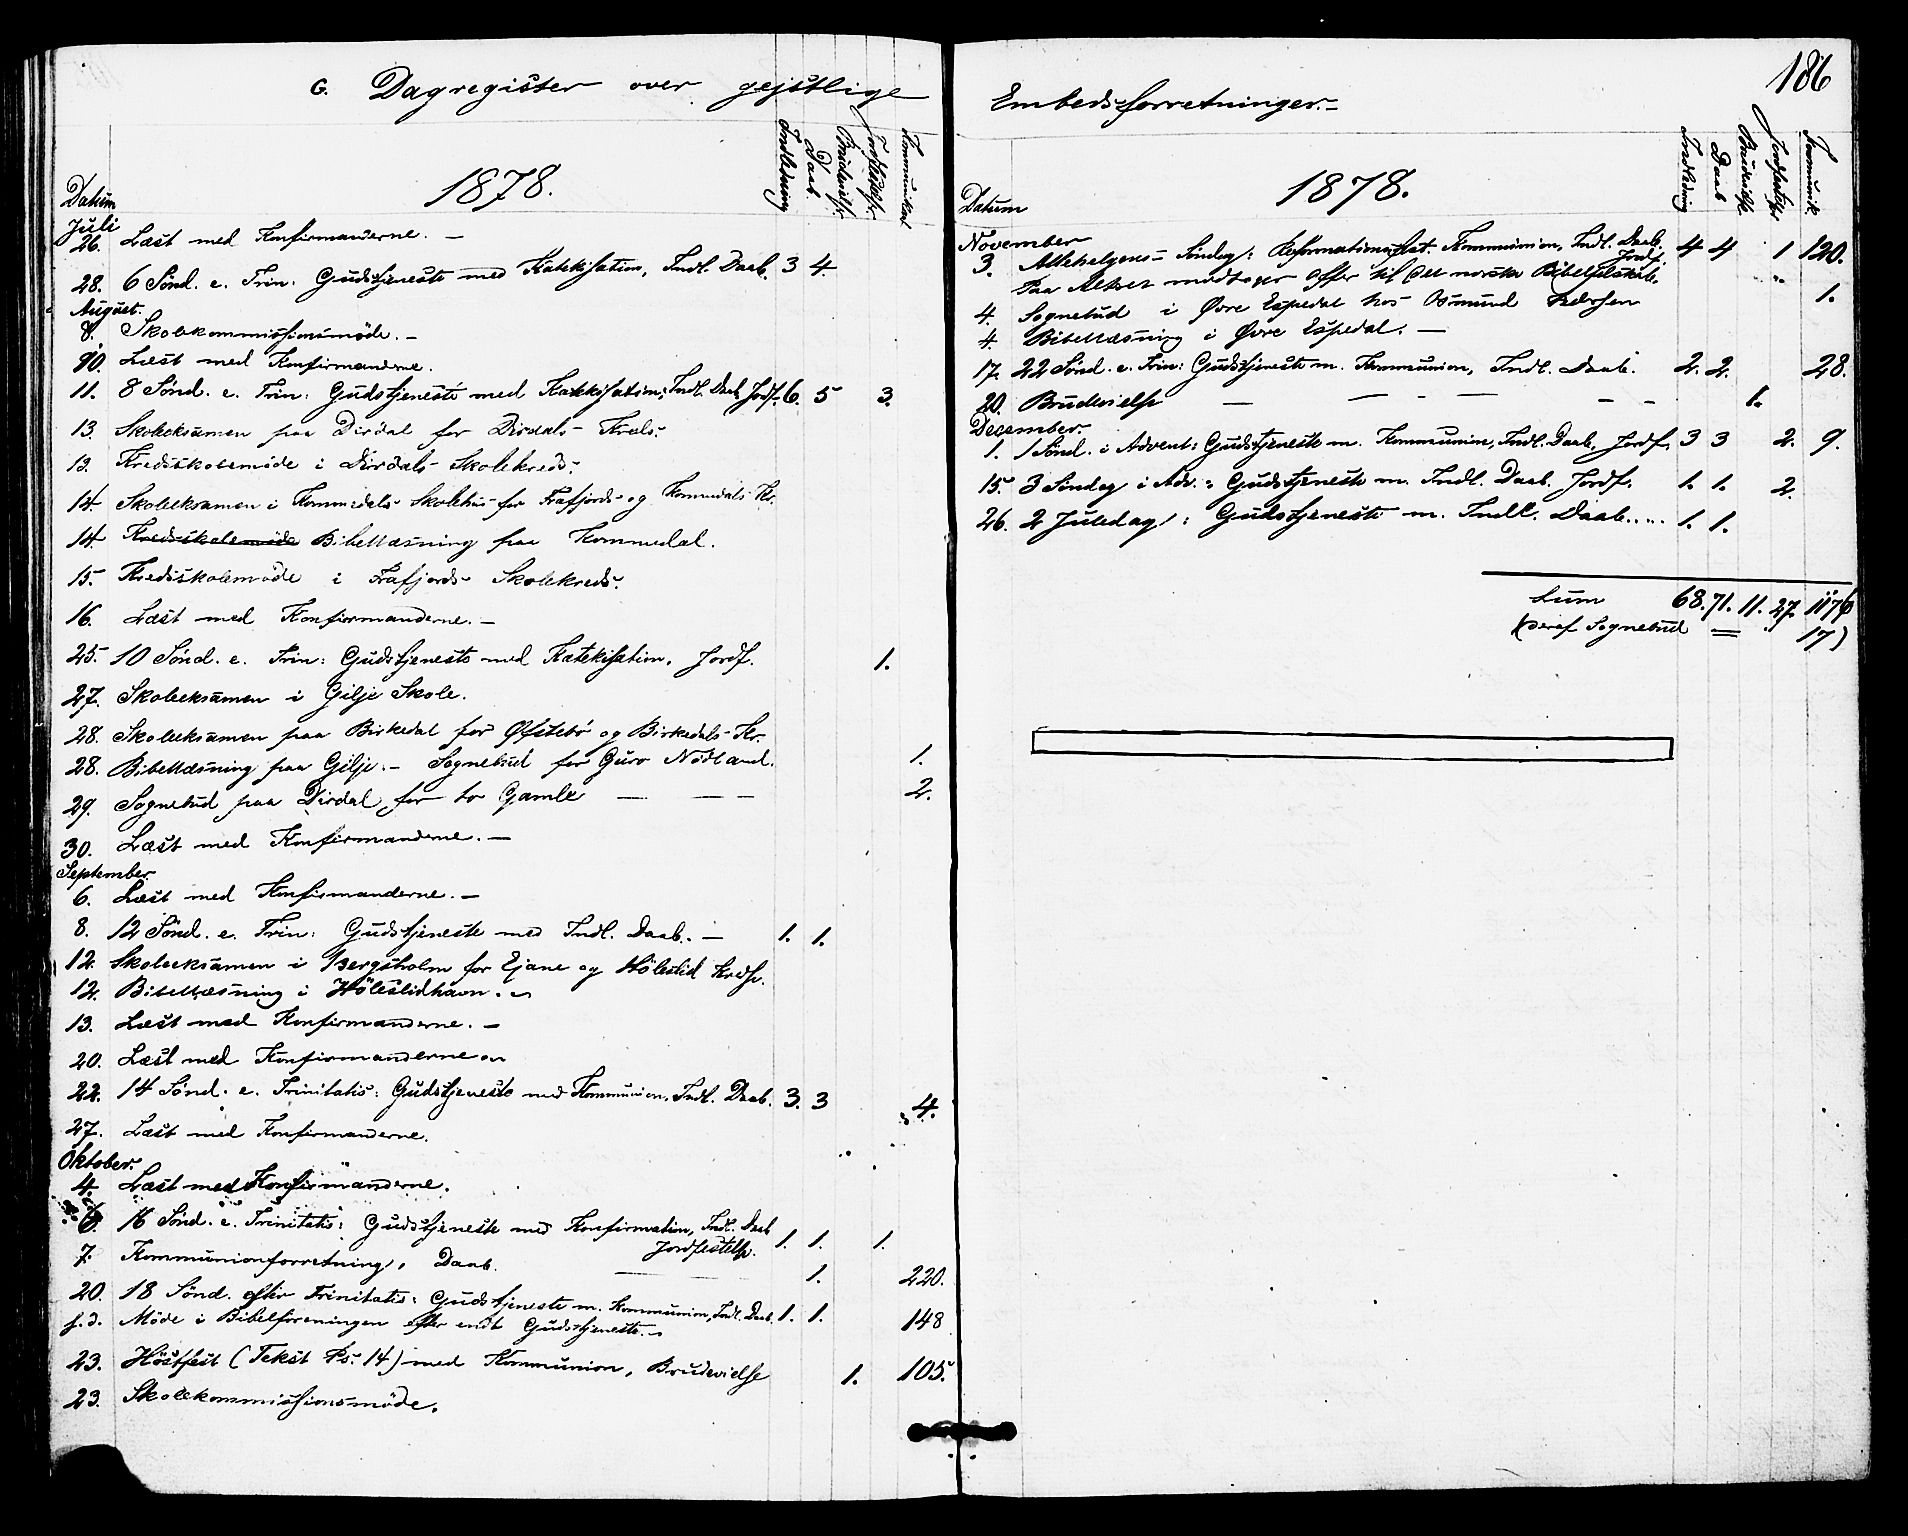 G. Dagregister over gejstlige
Datum 1878. Indledning Daab. Brudevielse. Jordfæstelse. Kommunikant
Juli
26. Læst med Konfirmanderne. —
28. 6 Sønd. e. Trin: Gudstjeneste med Katekisation, Indl. Daab. 3 4.
August.
8. Skolekommissionsmöde. —
10. Læst med Konfirmanderne.
11. 8 Sønd. e. Trin: Gudstjeneste med Katekisation, Indl. Daab, Jordf. 6. 5 3.
13. Skoleeksamen paa Dirdal for Dirdals Kreds.
13. Kredsskolemöde i Dirdals Skolekreds.
14. Skoleeksamen i Kommedals Skolehus for Frafjords og Kommedals Kr.
14. Kredsskolemöde Bibellæsning paa Kommedal.
15. Kredsskolemöde i Frafjords Skolekreds.
16. Læst med Konfirmanderne. —
25. 10 Sønd. e. Trin: Gudstjeneste med Katekisation. Jordf. 1.
27. Skoleeksamen i Gilje Skole.
28. Skoleeksamen paa Birkedal for Øfstebö og Birkedals Kr.
28. Bibellæsning paa Gilje. — Sognebud for Guro Nödland. 1.
29. Sognebud paa Dirdal for to Gamle — — — 2.
30. Læst med Konfirmanderne. —
September.
6. Læst med Konfirmanderne. —
8. 12 Sønd. e. Trin: Gudstjeneste med Indl. Daab. — 1. 1.
12. Skoleeksamen i Bergsholm for Ejane og Höleslid Kredse.
12. Bibellæsning i Höleslidhavn. —
13. Læst med Konfirmanderne. —
20. Læst med Konfirmanderne —
22. 14 Sønd. e. Trinitatis: Gudstjeneste med Kommunion, Indl. Daab. 3. 3 4.
27. Læst med Konfirmanderne.
Oktober.
4. Læst med Konfirmanderne.
6. 16 Sønd. e. Trinitatis: Gudstjeneste med Konfirmation, Indl. Daab
Jordfæstelse. 1. 1. 1.
7. Kommunionforretning, Daab. — — 1. 220.
20. 18 Sønd. efter Trinitatis: Gudstjeneste m. Kommunion, Indl. Daab. 1. 1. 148
s. d. Möde i Bibelforeningen efter endt Gudstjeneste. —
23. Höstfest (Tekst Ps. 14) med Kommunion, Brudevielse 1. 105.
23. Skolekommissionsmöde.
186
Embedsforretninger. =
Datum 1878. Indledning Daab Brudevielse. Jordfæstelse Kommunik.
November
3. Allehelgens Søndag: Reformationsfest. Kommunion, Indl. Daab. Jordf. 4 4 1 120.
Paa Alteret modtoges Offer til Det norske Bibelselskab.
4. Sognebud i Øvre Espedal hos Osmund 1.
4. Bibellæsning i Øvre Espedal. —
17. 22 Sønd. e. Trin: Gudstjeneste m. Kommunion, Indl. Daab. 2. 2. 28.
20. Brudevielse — — — — — 1.
December.
1. 1 Sønd. i Advent: Gudstjeneste m. Kommunion, Indl. Daab, Jordf. 3 3 2. 9.
15. 3 Søndag i Adv.: Gudstjeneste m. Indl. Daab. Jordf. 1. 1. 2.
26. 2 Juledag: Gudstjeneste m. Indl. Daab.... 1. 1.
Sum 68. 71. 11. 27. 1176
(Deraf Sognebud = 17)